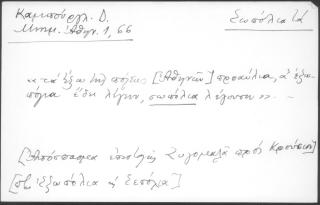 Καμπούργλ. Δ.
Μνημ. Ἀθην. 1, 66
Ξωπόλια τά
«τὰ ἔξω τῆς πόλεως [Ἀθηνῶν] προαύλια, ἃ ἐξω-
πόρτα ἔδει λέγειν, ξωπόλια λέγουσιν» . –
[Ἀπόσπασμα ἐπιστολῆς Ζυγομαλᾶ πρὸς Κρούσιον]
[πβ. ἐξωπόλια ἢ ξεπόλια]